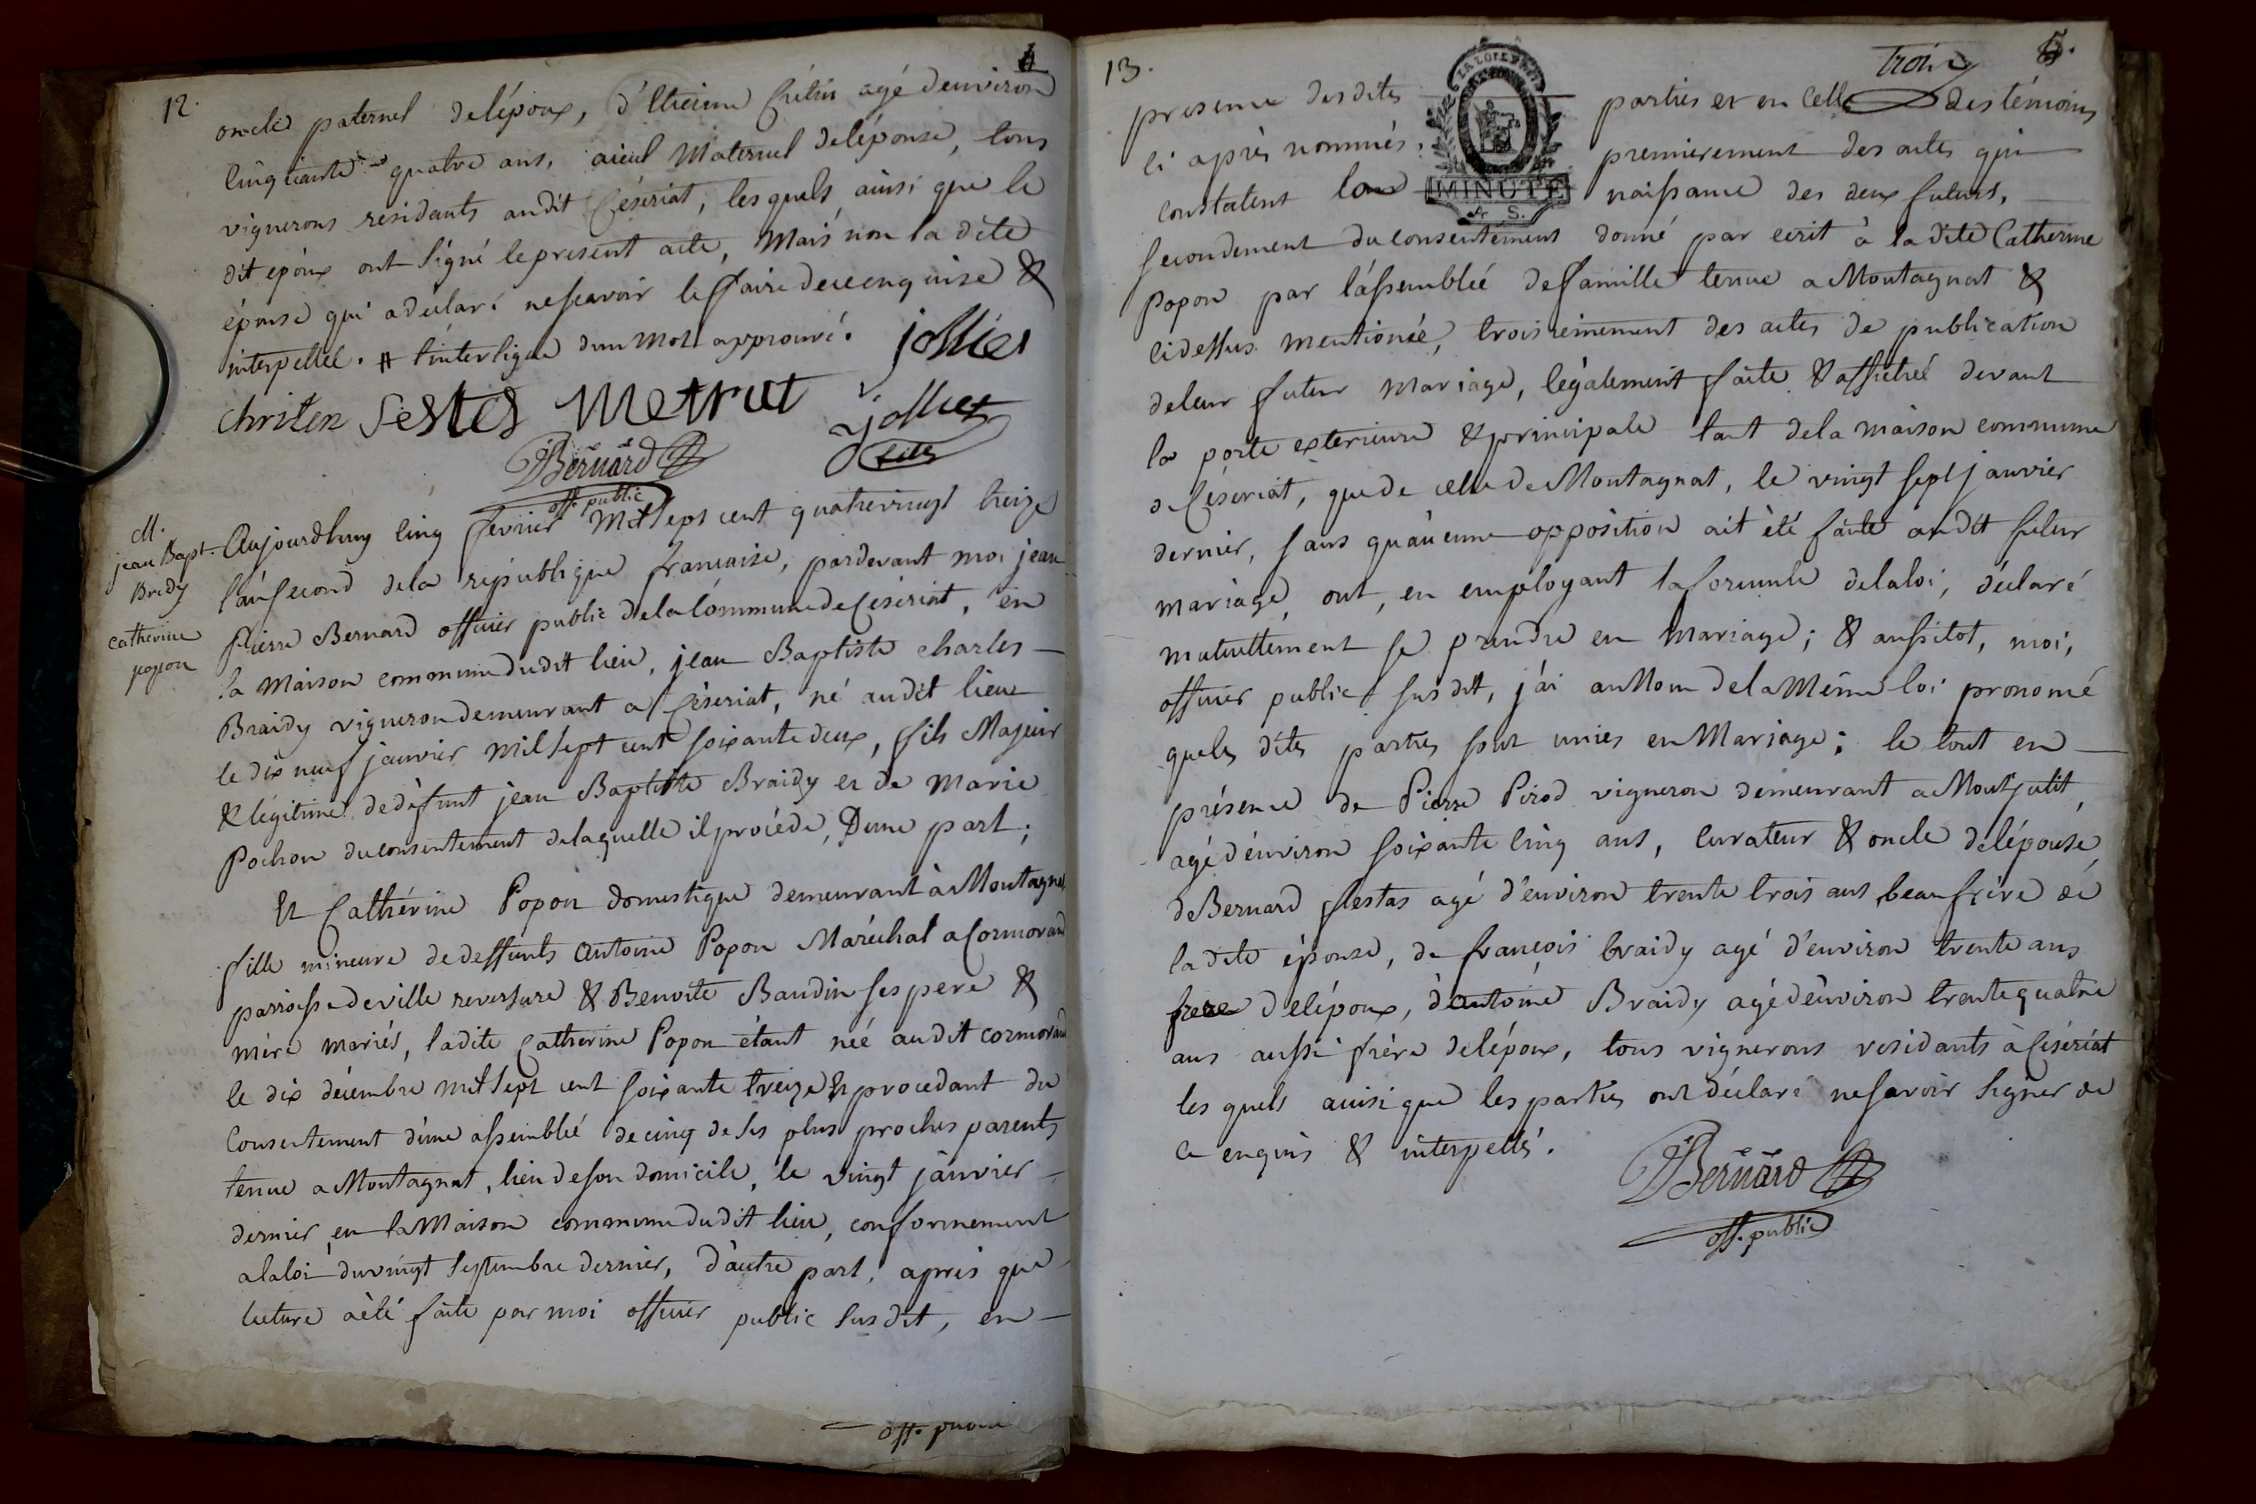 12.
oncle paternel de l'époux, d'Etienne Crétin agé d'environ
cinquante-quatre ans, aieul maternel de l'épouse, tous
vignerons residants audit Céseriat, lesquels, ainsi que le
dit epoux ont signé le present acte, mais non la dite
épouse qui a déclaré ne scavoir le faire de ce enquise &
interpellée. # l'interligne d'un mot approuvé.
jollier
chriten sestes Metrut jollier
Bernard
off. public
M.
jean Bapt.
Bredy
catherine
popon
Aujourdhuy cinq fevrier mil sept cent quatrevingt treize
l'an second de la république francaise, pardevant moi jean
pierre Bernard officier public de la Commune de Céseriat, en
la maison commune dudit lieu, jean Baptiste charles
Braidy vigneron demeurant a Céseriat, né audit lieu
le dix neuf janvier mil sept cent soixante deux, fils majeur
& légitime de défunt jean Baptiste Braidy et de marie
Pochon du consentement de laquelle il procéde, D'une part;
Et Cathérine Popon domestique demeurant à Montagnat
fille mineure de deffunts antoine Popon Maréchal a Cormorand
parroisse de ville reversure & Benoite Baudin ses pere &
mére mariés, ladite Catherine Popon étant née audit cormorand
le dix décembre mil sept cent soixante treize & procedant du
Consentement d'une assemblée de cinq de ses plus proches parents
tenue a Montagnat, lieu de son domicile, le vingt janvier
dernier, en la Maison commune dudit lieu, conformement
a la loi du vingt septembre dernier, d'autre part, aprés que
lecture a été faite par moi officier public susdit, en
off. public
13.
trois
5.
presence desdites parties et en celle des témoins
ci aprés nommés, premierement des actes qui
constatent la naissance des deux futurs,
LA LOI
MINUTE
4 S.
secondement du consentement donné par ecrit à la dite Catherine
popon par l'assemblée de famille tenue a Montagnat &
cidessus mentionée, troisieimement des actes de publication
de leur futur mariage, légalement faite & affichée devant
la porte exterieure & principale tant de la maison commune
de Céseriat, que de celle de Montagnat, le vingt sept janvier
dernier, sans qu'aucune opposition ait été faite audit futur
mariage ont, en employant la formule de la loi, déclaré
mutuellement se prendre en mariage; & aussitot, moi,
officier public susdit, j'ai au Nom de la Même loi prononcé
que lesdites parties sont unies en Mariage; le tout en
présence de Pierre Pirod vigneron demeurant a Montjulit,
agé d'environ soixante cinq ans, curateur & oncle de l'épouse
de Bernard sestas agé d'environ trente trois ans beaufrère de
la dite épouse, de françois braidy agé d'environ trente ans
frere de l'époux, d'antoine Braidy agé d'environ trente quatre
ans aussi frère de l'époux, tous vignerons residants à Céseriat
lesquels ainsi que les parties ont déclaré ne savoir signer de
ce enquis & interpellés.
Bernard
off. public